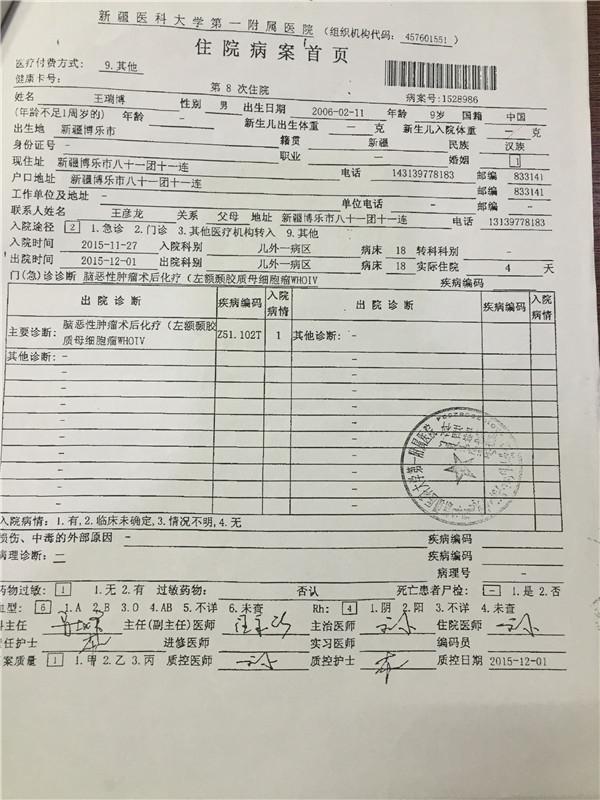 新疆医科大学第一附属医院 (组织机构代码: 457601551 )
住院病案首页
医疗付费方式: 9.其他
健康卡号: 第 8 次住院 病案号:1528986
姓名 王瑞博 性别 男 出生日期 2006-02-11 年龄 9岁 国籍 中国
(年龄不足1周岁的) 年龄 - 新生儿出生体重 - 克 新生儿入院体重 - 克
出生地 新疆博乐市 籍贯 新疆 民族 汉族
身份证号 - 职业 - 婚姻 1
现住址 新疆博乐市八十一团十一连 电话 143139778183 邮编 833141
户口地址 新疆博乐市八十一团十一连 邮编 833141
工作单位及地址 - 单位电话 - 邮编 -
联系人姓名 王彦龙 关系 父母 地址 新疆博乐市八十一团十一连 电话 13139778183
入院途径 2 1.急诊 2.门诊 3.其他医疗机构转入 9.其他
入院时间 2015-11-27 入院科别 儿外一病区 病床 18 转科科别 -
出院时间 2015-12-01 出院科别 儿外一病区 病床 18 实际住院 4 天
门(急)诊诊断 脑恶性肿瘤术后化疗 (左额颞胶质母细胞瘤WHOIV 疾病编码
出院诊断 疾病编码 入院病情 出院诊断 疾病编码 入院病情
主要诊断: 脑恶性肿瘤术后化疗 (左额颞胶质母细胞瘤WHOIV Z51.102T 1 其他诊断: -
其他诊断: - -
- -
- -
- -
- -
- -
- -
- -
- -
入院病情: 1.有, 2.临床未确定, 3.情况不明, 4.无
损伤、中毒的外部原因 - 疾病编码
病理诊断: 二 疾病编码
病理号 -
药物过敏: 1 1.无 2.有 过敏药物: 否认 死亡患者尸检: - 1.是 2.否
血型: 6 1.A 2.B 3.O 4.AB 5.不详 6.未查 Rh: 4 1.阴 2.阳 3.不详 4.未查
科主任 主任(副主任)医师 主治医师 住院医师
责任护士 进修医师 实习医师 编码员
病案质量 1 1.甲 2.乙 3.丙 质控医师 质控护士 质控日期 2015-12-01